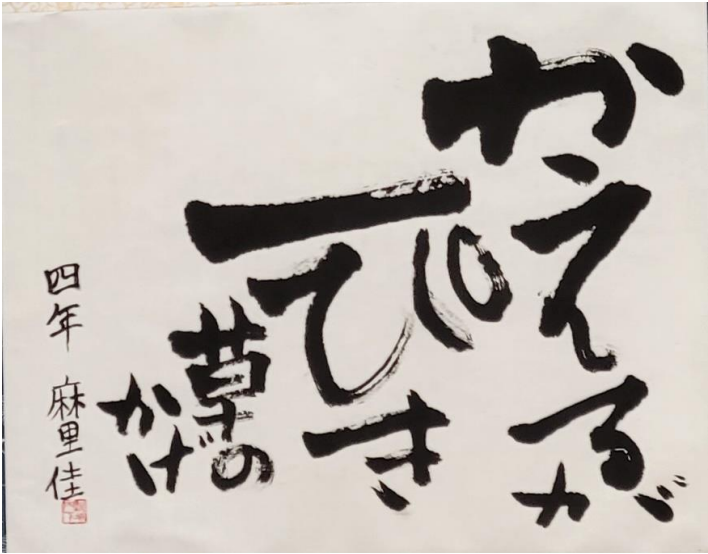 かえるが
一ぴき
草の
かげ
四年 麻里佳